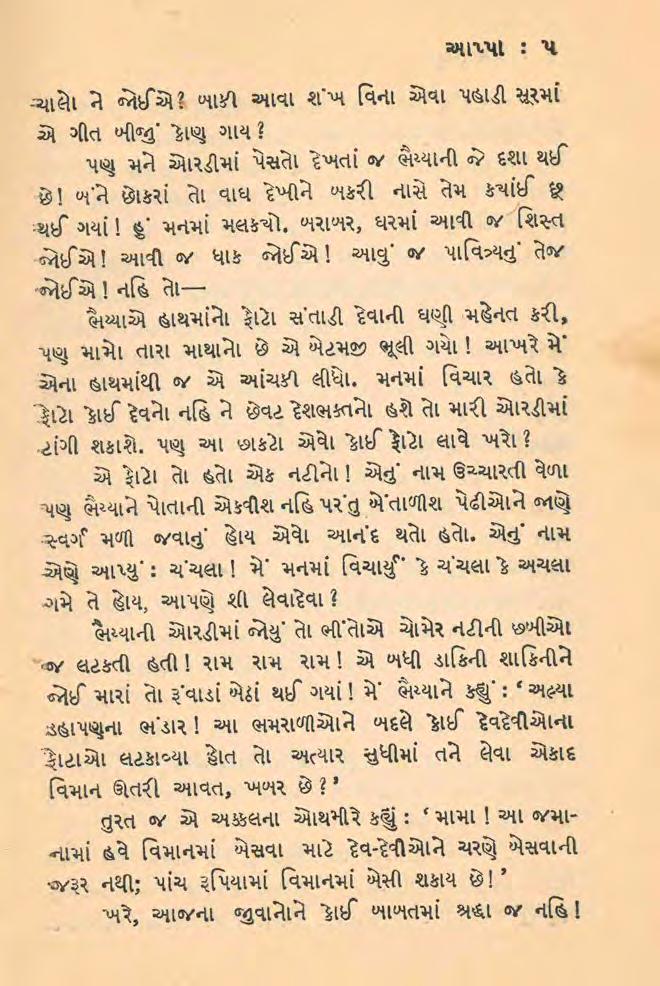 આપ્પા : ૫
ચાલો ને જોઈએ? બાકી આવા શંખ વિના એવા પહાડી સૂરમાં
એ ગીત બીજું કોણ ગાય?
પણ મને ઓરડીમાં પેસતો દેખતાં જ ભૈય્યાની જે દશા થઈ
છે! બંને છોકરાં તો વાઘ દેખીને બકરી નાસે તેમ કયાંઈ છૂ
થઈ ગયાં! હું મનમાં મલકયો. બરાબર, ઘરમાં આવી જ શિસ્ત
જોઈએ! આવી જ ધાક જોઈએ! આવું જ પાવિત્ર્યનું તેજ
જોઈએ! નહિ તો—
ભૈય્યાએ હાથમાંનો ફોટો સંતાડી દેવાની ઘણી મહેનત કરી,
પણ મામો તારા માથાનો છે એ બેટમજી ભૂલી ગયો! આખરે મેં
એના હાથમાંથી જ એ આંચકી લીધો. મનમાં વિચાર હતો કે
ફોટો કોઈ દેવનો નહિ ને છેવટ દેશભક્તનો હશે તો મારી ઓરડીમાં
ટાંગી શકાશે. પણ આ છાકટો એવો કોઈ ફોટો લાવે ખરો?
એ ફોટો તો હતો એક નટીનો! એનું નામ ઉચ્ચારતી વેળા
પણ ભૈય્યાને પોતાની એકવીશ નહિ પરંતુ બેંતાળીશ પેઢીઓને જાણે
સ્વર્ગ મળી જવાનું હોય એવો આનંદ થતો હતો. એનું નામ
એણે આપ્યું : ચંચલા! મેં મનમાં વિચાર્યું કે ચંચલા કે અચલા
ગમે તે હોય, આપણે શી લેવાદેવા?
ભૈય્યાની ઓરડીમાં જોયું તો ભીંતોએ ચોમેર નટીની છબીઓ
જ લટકતી હતી! રામ રામ રામ! એ બધી ડાકિની શાકિનીને
જોઈ મારાં તો રૂંવાડાં બેઠાં થઈ ગયાં! મેં ભૈય્યાને કહ્યું : ‘અલ્યા
ડહાપણના ભંડાર! આ ભમરાળીઓને બદલે કોઈ દેવદેવીઓના
ફોટાઓ લટકાવ્યા હોત તો અત્યાર સુધીમાં તને લેવા એકાદ
વિમાન ઊતરી આવત, ખબર છે?’
તુરત જ એ અક્કલના ઓથમીરે કહ્યું : ‘મામા! આ જમા-
નામાં હવે વિમાનમાં બેસવા માટે દેવ-દેવીઓને ચરણે બેસવાની
જરૂર નથી; પાંચ રૂપિયામાં વિમાનમાં બેસી શકાય છે!’
ખરે, આજના જુવાનોને કોઈ બાબતમાં શ્રદ્ધા જ નહિ!